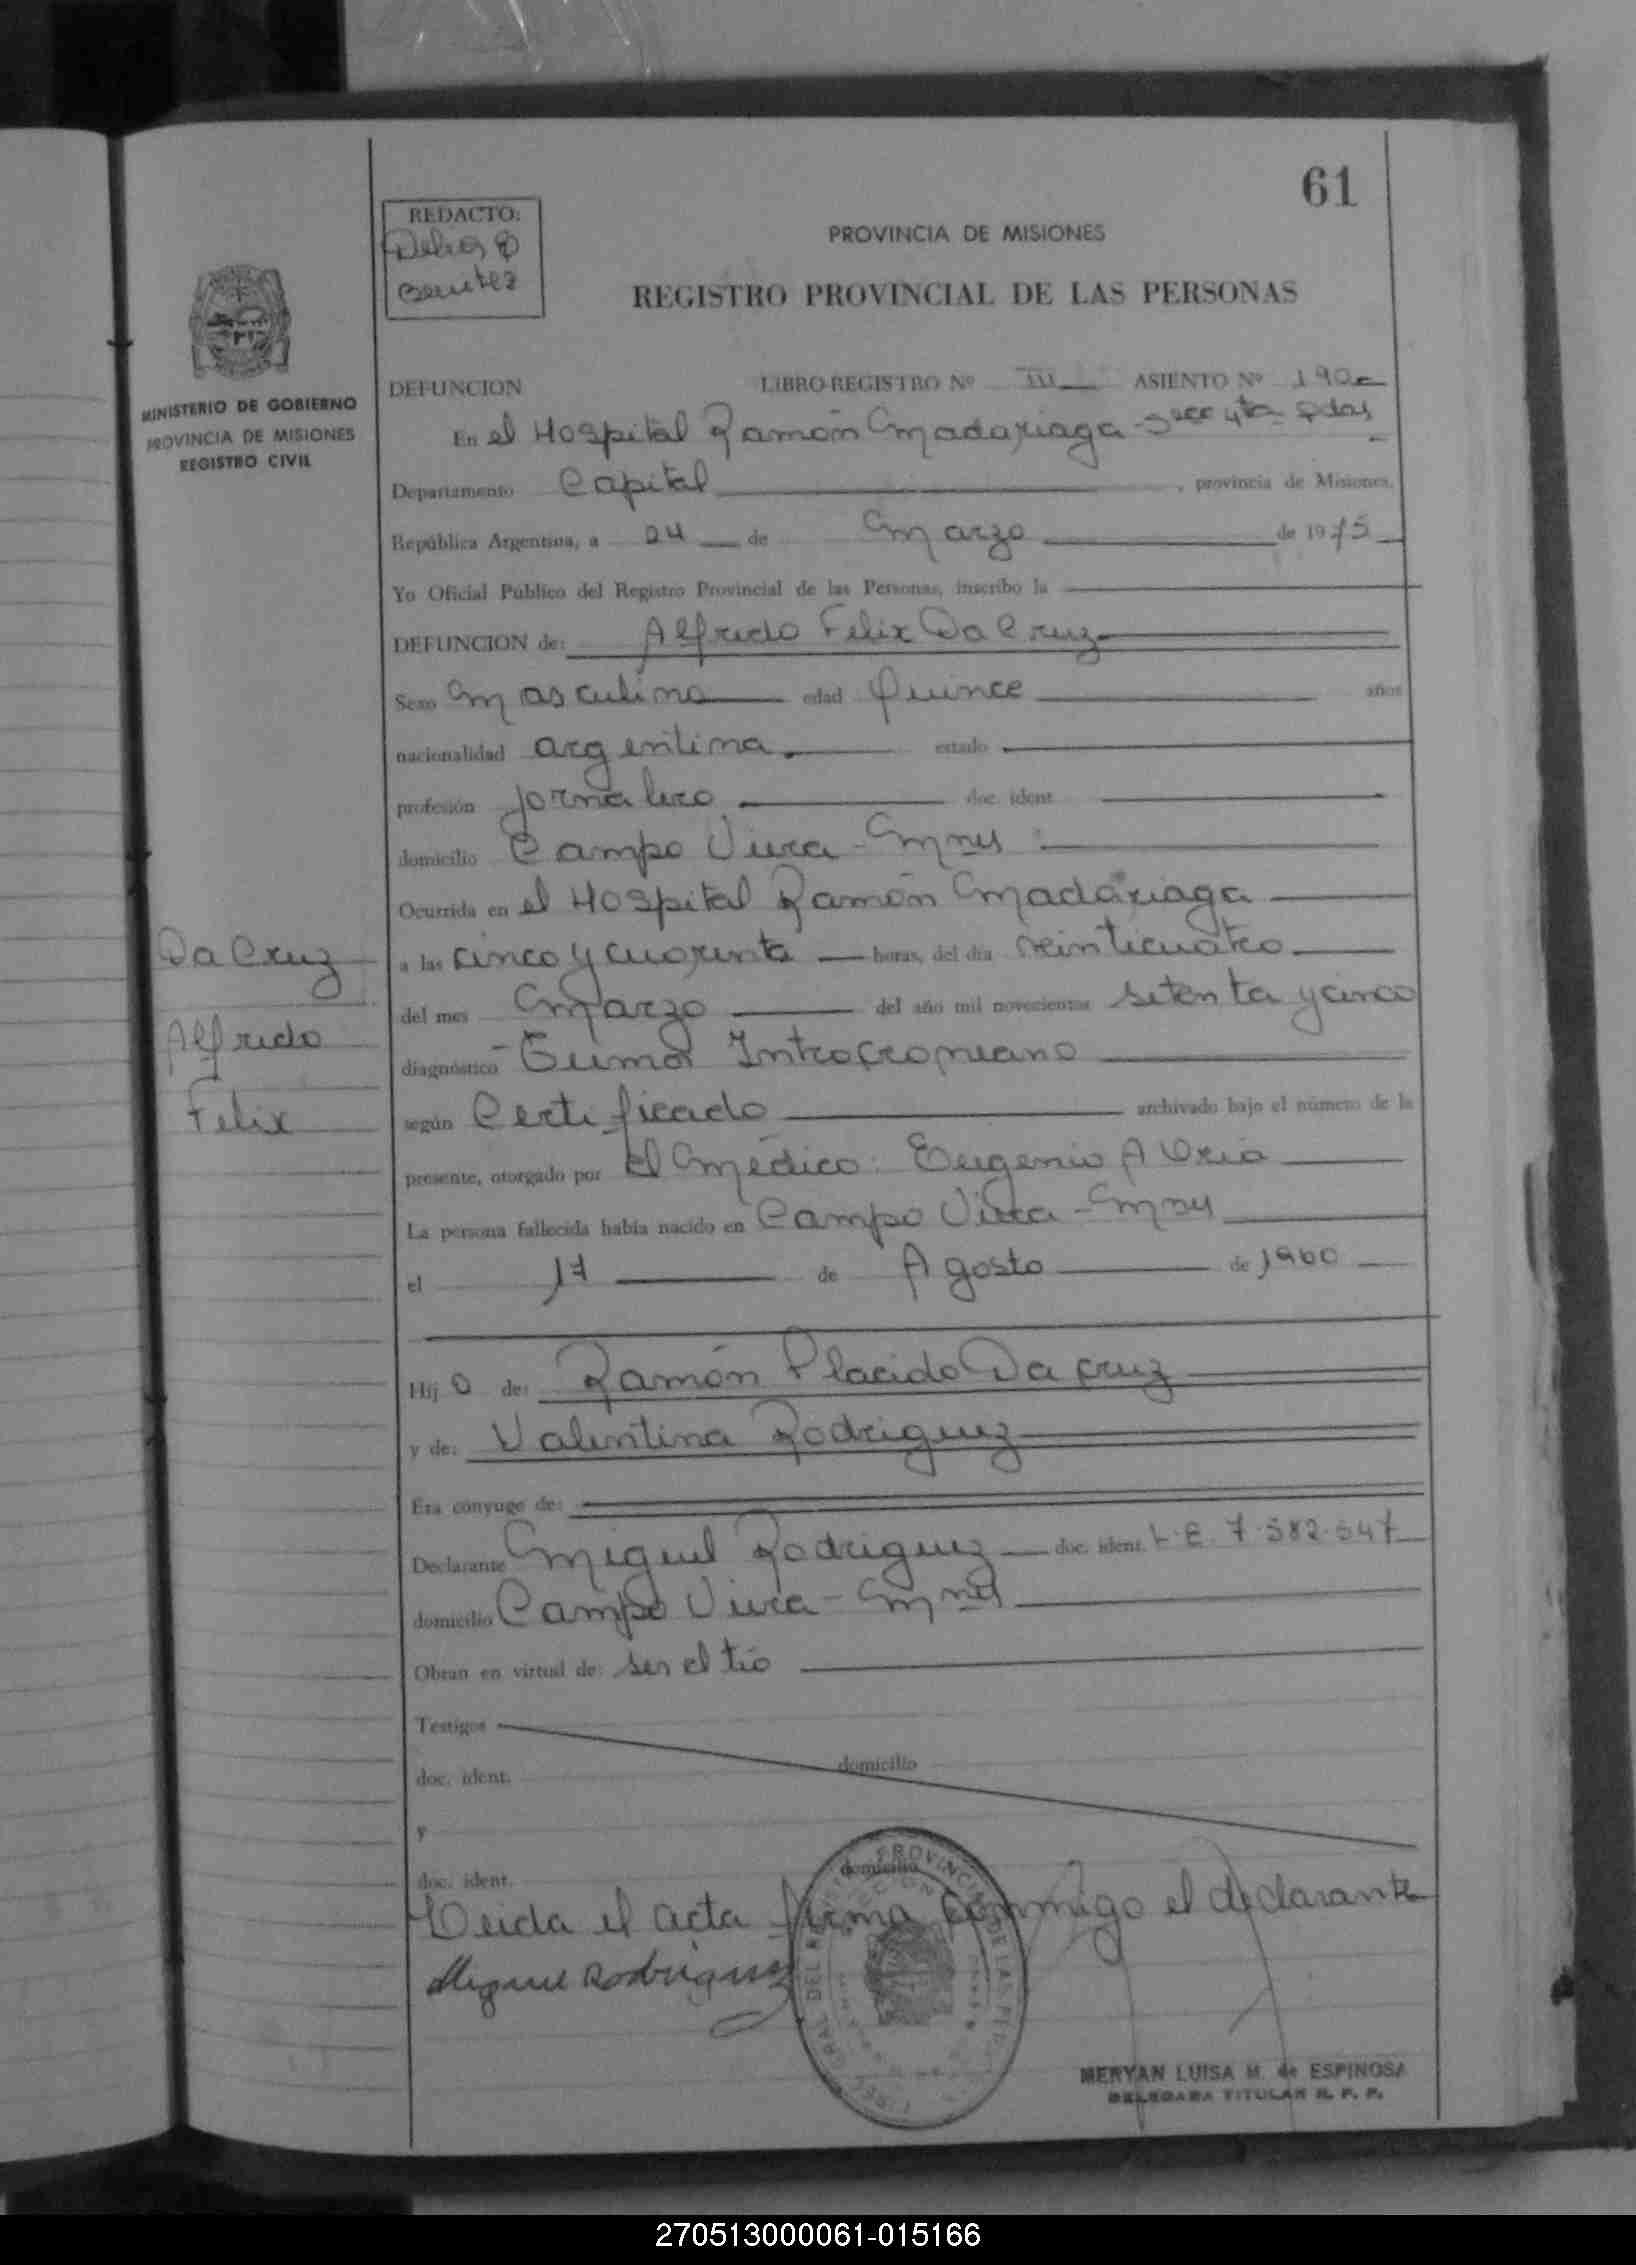 61
REDACTO:
Delia B
Benitez
PROVINCIA DE MISIONES
REGISTRO PROVINCIAL DE LAS PERSONAS
MINISTERIO DE GOBIERNO
PROVINCIA DE MISIONES
REGISTRO CIVIL
DEFUNCION LIBRO-REGISTRO Nº III ASIENTO Nº 190
En el Hospital Ramón Madariaga - Secc 4ta Pdas
Departamento Capital , provincia de Misiones,
República Argentina, a 24 de Marzo de 1975
Yo Oficial Público del Registro Provincial de las Personas, inscribo la
DEFUNCION de: Alfredo Felix Da Cruz
Sexo Masculino edad Quince años
nacionalidad argentina estado
profesión jornalero doc. ident.
domicilio Campo Viera - Mnes
Ocurrida en el Hospital Ramón Madariaga
a las cinco y cuarenta horas, del día veinticuatro
del mes Marzo del año mil novecientos setenta y cinco
diagnóstico Tumor Intracraneano
según Certificado archivado bajo el número de la
presente, otorgado por El Médico: Eugenio A
La persona fallecida había nacido en Campo Viera - Mnes
el 17 de Agosto de 1960
Hij o de: Ramón Placido Da Cruz
y de: Valentina Rodriguez
Era cónyuge de:
Declarante Miguel Rodriguez doc. ident. L.E. 7.582.547
domicilio Campo Viera - Mnes
Obran en virtual de: ser el tío
Testigos
doc. ident. domicilio
y
doc. ident. domicilio
Leida el acta firma conmigo el declarante
Miguel Rodriguez
MERYAN LUISA M. de ESPINOSA
DELEGADA TITULAR R. P. P.
Da Cruz
Alfredo
Felix
270513000061-015166